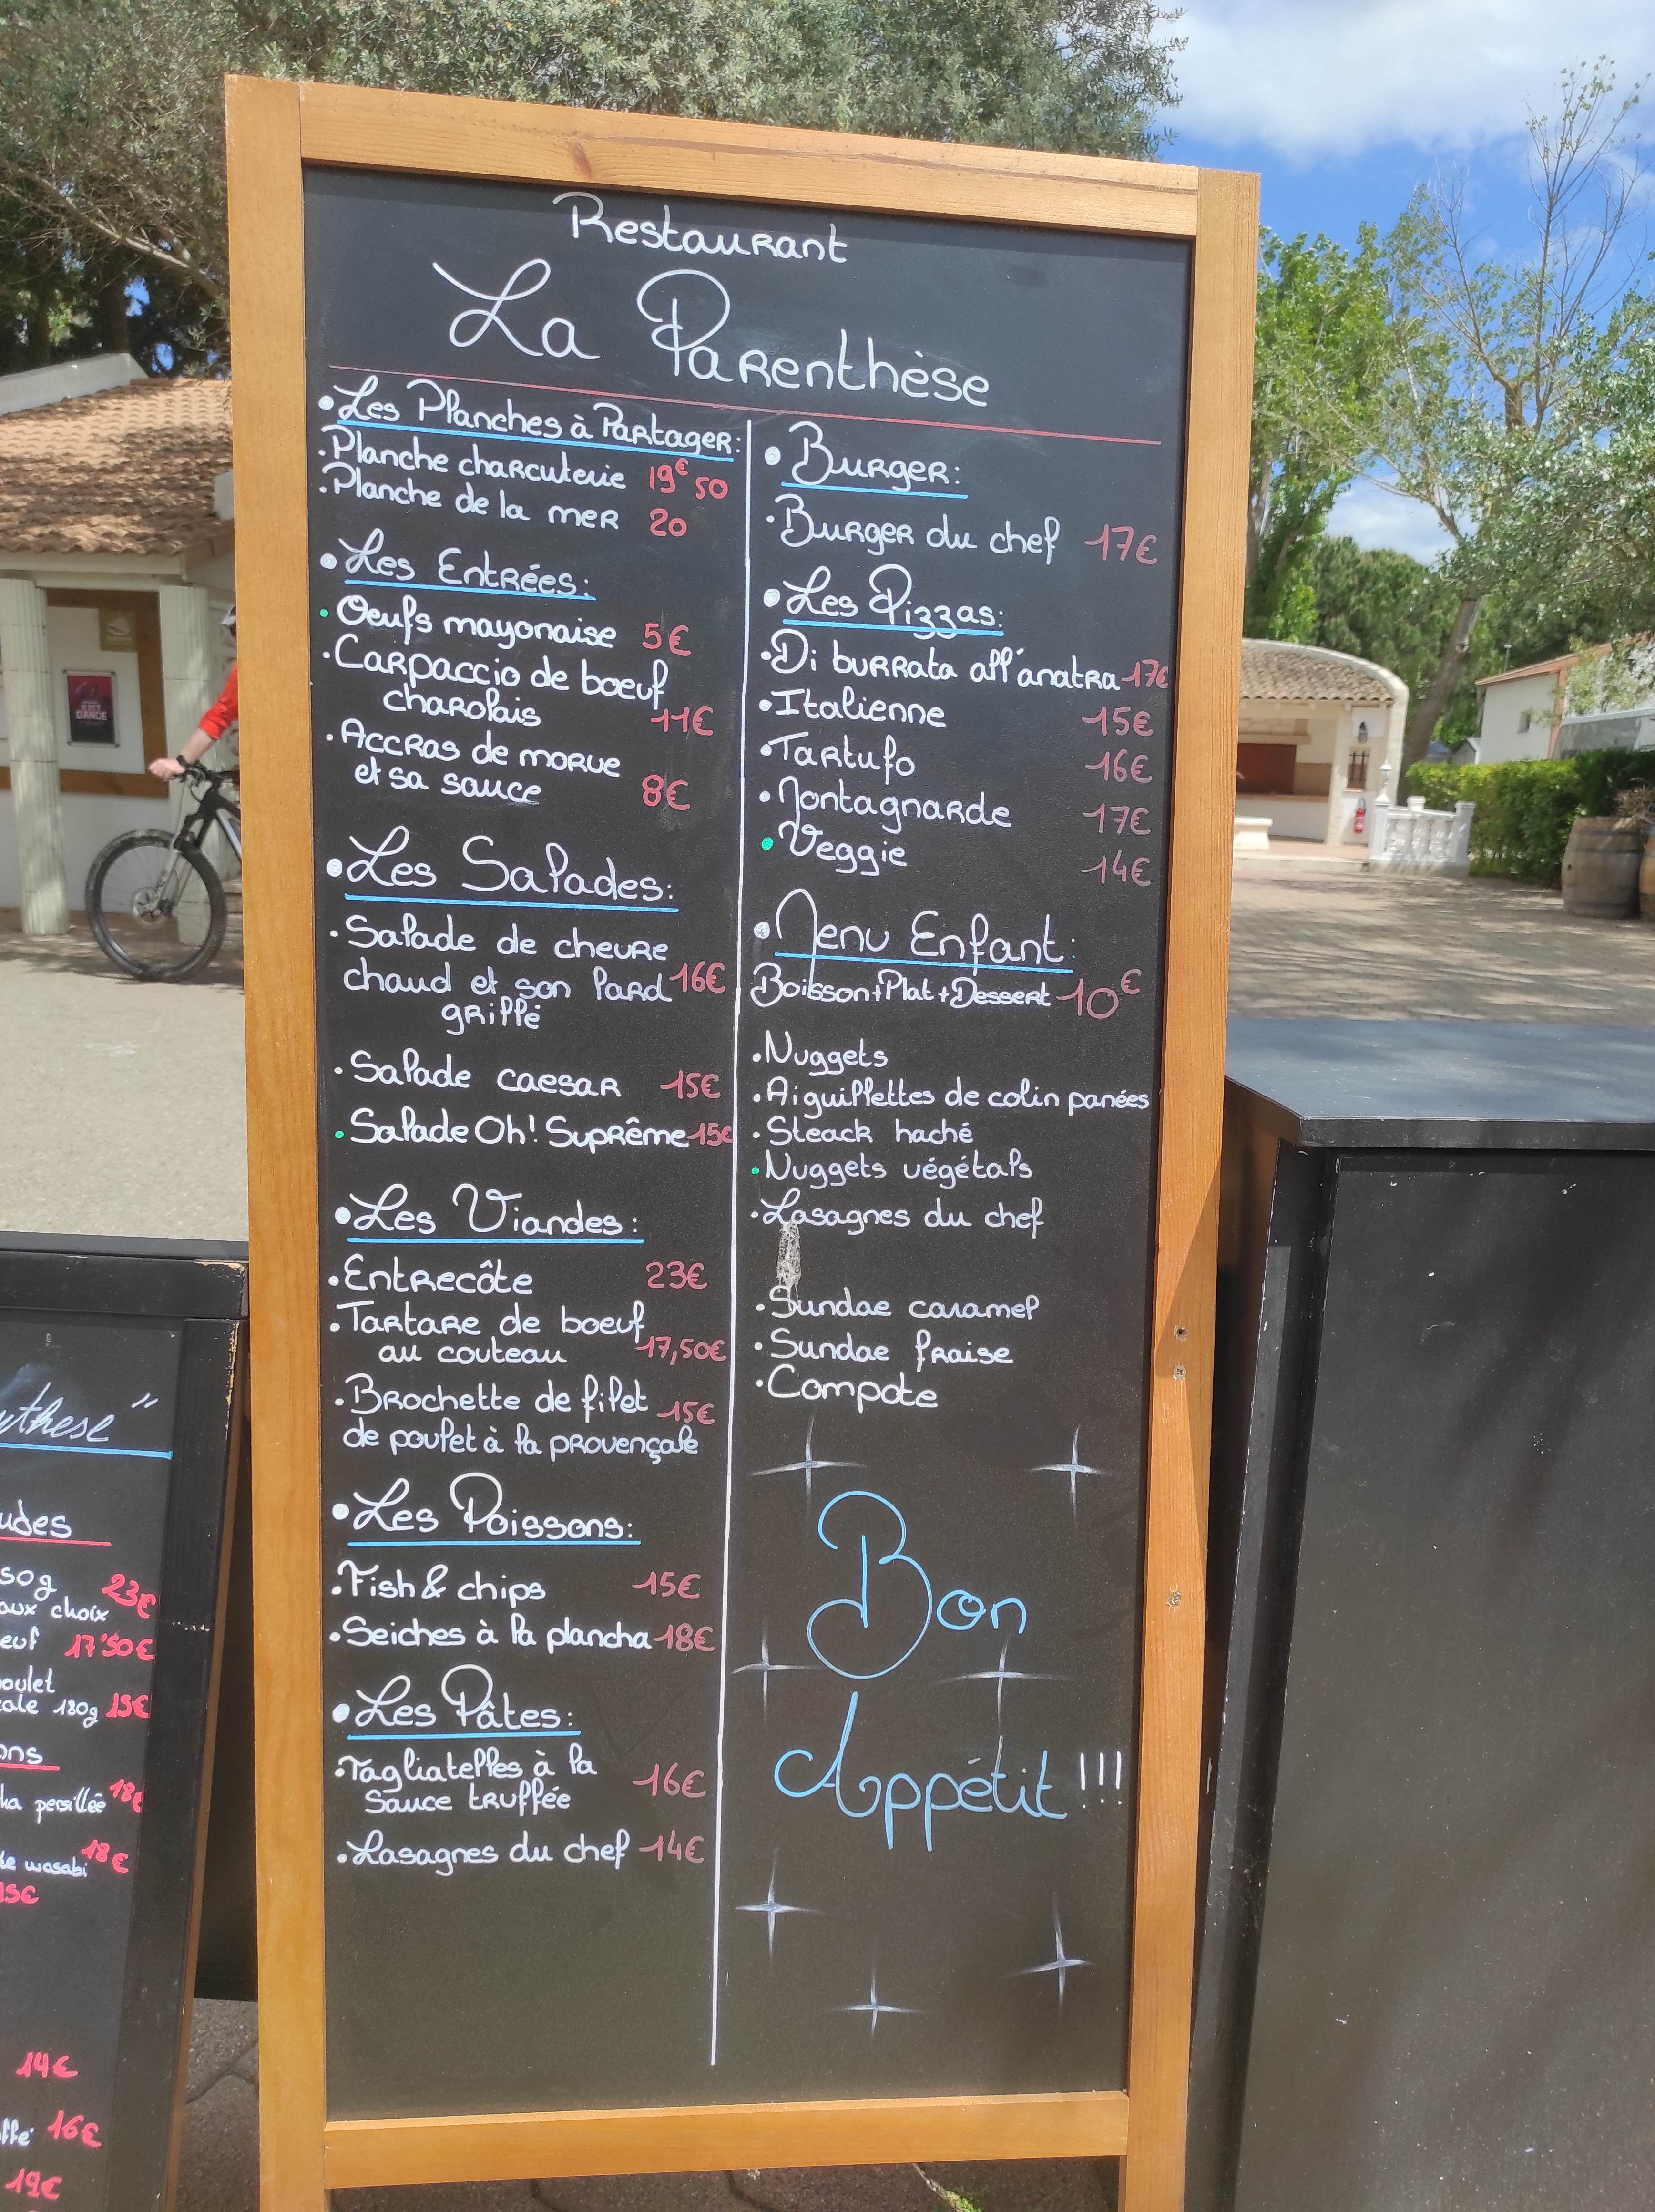 Restaurant
La Parenthèse
• Les Planches à Partager:
. Planche charcuterie 19€50
. Planche de la mer 20
• Les Entrées:
. Oeufs mayonaise 5€
. Carpaccio de boeuf
charolais 11€
. Accras de morue
et sa sauce 8€
• Les Salades:
. Salade de chevre
chaud et son lard 16€
grillé
. Salade caesar 15€
. Salade Oh! Suprême 15€
• Les Viandes:
. Entrecôte 23€
. Tartare de boeuf
au couteau 17,50€
. Brochette de filet 15€
de poulet à la provençale
• Les Poissons:
. Fish & chips 15€
. Seiches à la plancha 18€
• Les Pâtes:
. Tagliatelles à la
sauce truffée 16€
. Lasagnes du chef 14€
• Burger:
. Burger du chef 17€
• Les Pizzas:
• Di burrata all'anatra 17€
• Italienne 15€
• Tartufo 16€
• Montagnarde 17€
• Veggie 14€
• Menu Enfant:
Boisson+Plat+Dessert 10€
. Nuggets
. Aiguillettes de colin panées
. Steack haché
. Nuggets végétals
. Lasagnes du chef
. Sundae caramel
. Sundae fraise
. Compote
Bon
Appétit !!!
23€
aux choix
17'50€
180g 15€
persillée 18€
wasabi 18€
15€
14€
16€
19€
JUST
DANCE